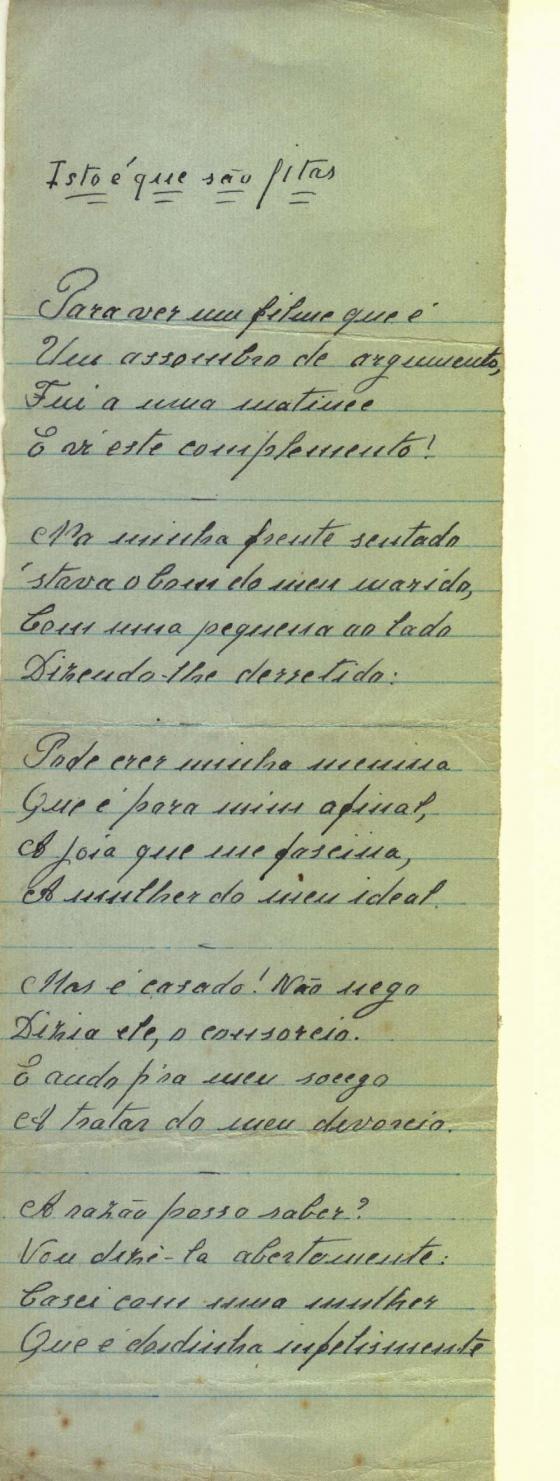 Isto é que são fitas
Para ver um filme que é
Um assombro de argumento,
Fui a uma matinee
E vi este complemento!
Na minha frente sentado
'stava o bom do meu marido,
Com uma pequena ao lado
Dizendo-lhe derretido:
Pode crer minha menina
Que é para mim afinal,
A joia que me fascina,
A mulher do meu ideal.
Mas é casado! Não nego
Dizia ele, o consorcio.
E ando p'ra meu socego
A tratar do meu divorcio.
A razão posso saber?
Vou dizê-la abertamente:
Casei com uma mulher
Que é doidinha infelismente